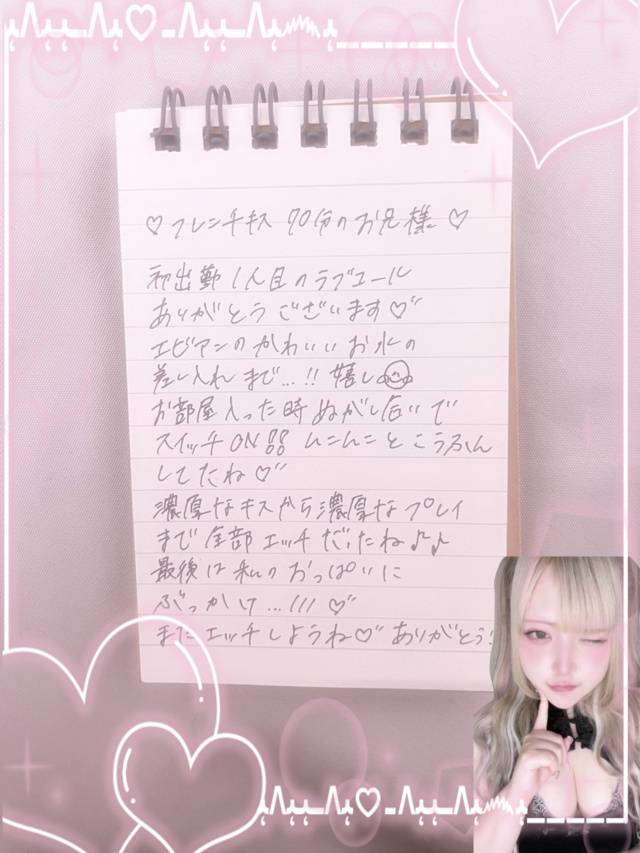 ♡フレンチキス 70分のお兄様♡
初出勤1人目のラブコール
ありがとうございます♡
エビアンのかわいいお水の
差し入れまで…!! 嬉し
お部屋入った時ぬがし合いで
スイッチON!! ムニムニとこうふん
してたね♡
濃厚なキスから濃厚なプレイ
まで全部エッチだったね♪♪
最後は私のおっぱいに
ぶっかけ…///♡
またエッチしようね♡ありがとう!